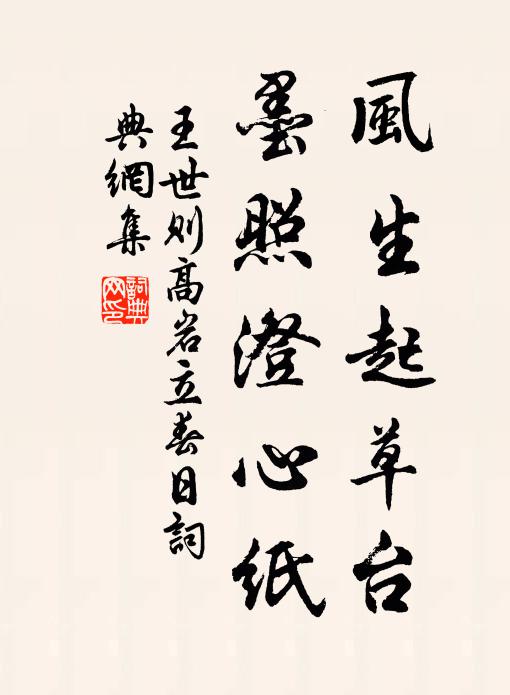 風生起草台
墨照澄心紙
王世则高岩立春日詞
典網集
詞典网印